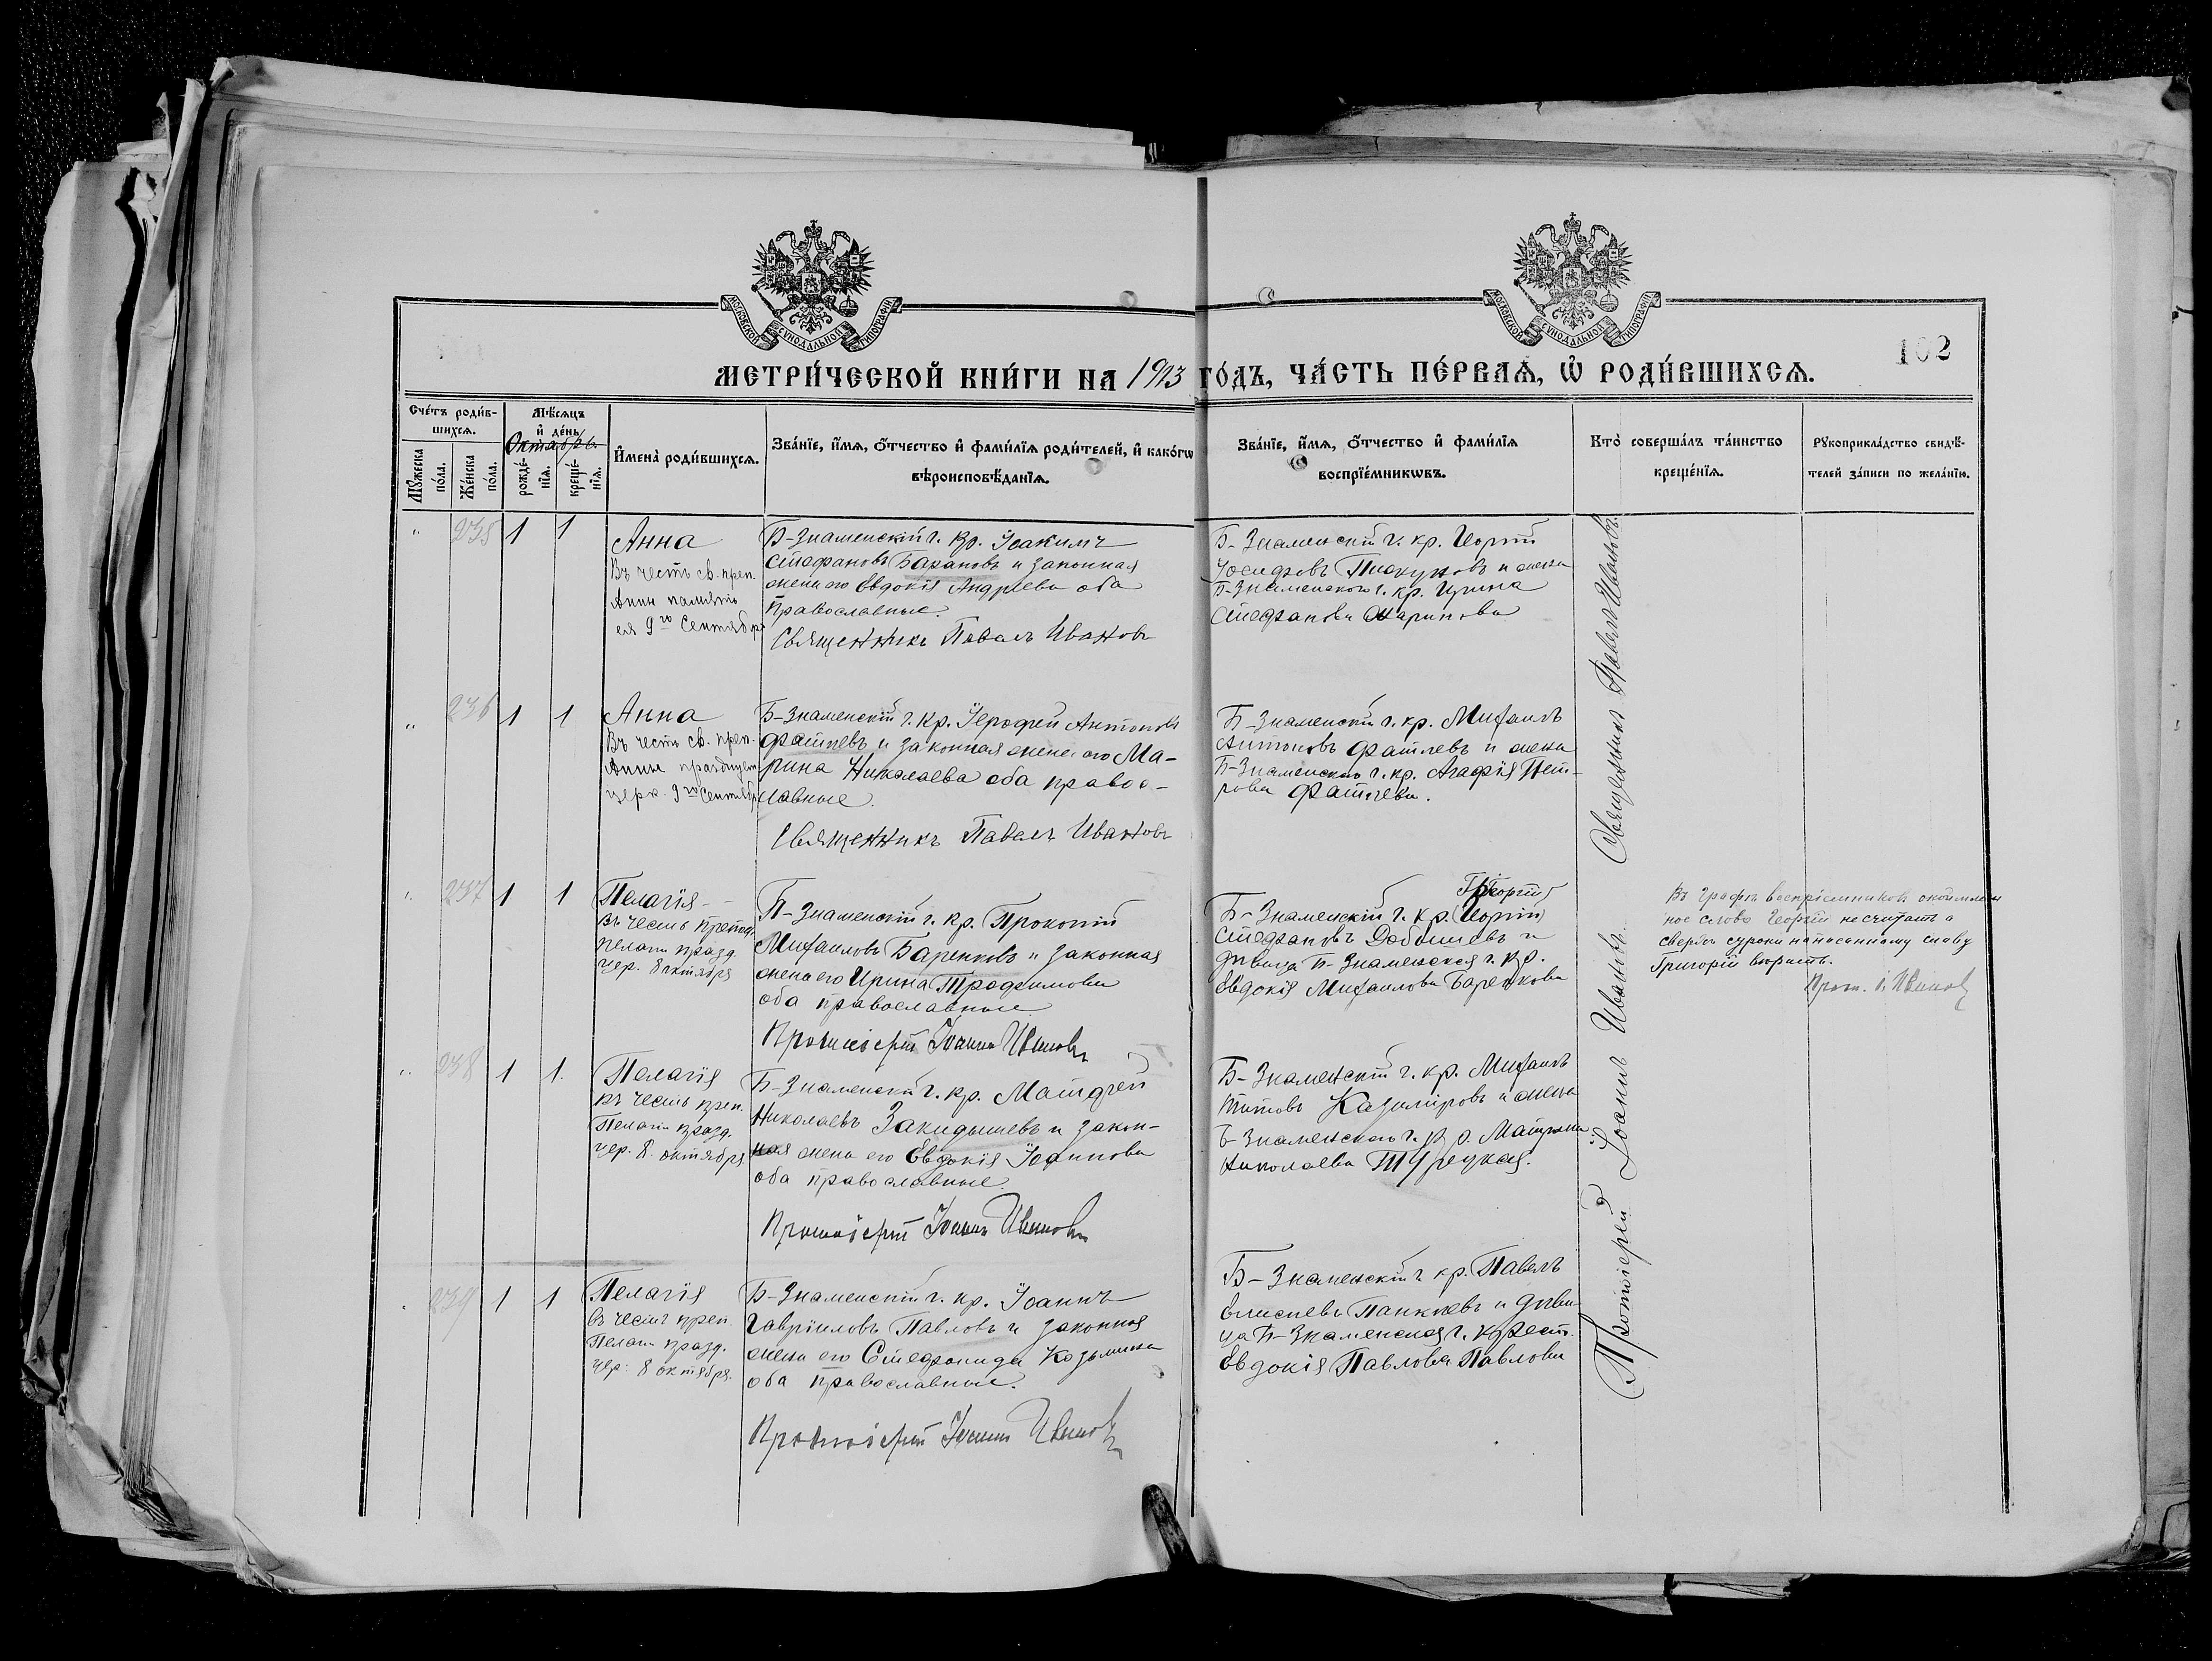 МОСКОВСКОЙ СѴНОДАЛЬНОЙ ТИПОГРАФІИ
МОСКОВСКОЙ СѴНОДАЛЬНОЙ ТИПОГРАФІИ
102
МЕТРИ́ЧЕСКОЙ КНИ́ГИ НА 1913 ГО́ДЪ, ЧА́СТЬ ПЕ́РВАѦ, Ѡ҆ РОДИ́ВШИХСѦ.
Сче́тъ роди́в-
шихсѧ.
Мꙋ́жеска по́ла.
Же́нска по́ла.
Мѣ́сѧцъ
и҆ де́нь
Октябрь
рожде́-нїѧ.
креще́-нїѧ.
И҆мена̀ роди́вшихсѧ.
Зва́нїе, и҆́мѧ, ѻ҆́тчество и҆ фами́лїѧ роди́телей, и҆ како́гѡ
вѣроисповѣ́данїѧ.
Зва́нїе, и҆́мѧ, ѻ҆́тчество и҆ фами́лїѧ
воспрїе́мникѡвъ.
Кто̀ соверша́лъ та́инство
креще́нїѧ.
Рꙋкоприкла́дство свидѣ́-
телей за́писи по жела́нїю.
" 235 1 1
Анна
Въ честь св. преп.
Анны
ея 9го Сентября
Б-Знаменскій г. кр. Іоакимъ
Стефановъ Бакановъ и законная
жена его Евдокія Андреева оба
православные.
Священникъ Павелъ Ивановъ
Б-Знаменскій г. кр.
Іосифовъ Пискуновъ и жена
Б-Знаменскаго г. кр. Ирина
Стефанова Маринова
" 236 1 1
Анна
Въ честь св. преп.
Анны празднуем.
церк. 9го Сентября
Б-Знаменскій г. кр. Іерофей Антоновъ
Фатѣевъ и законная жена его Ма-
рина Николаева оба правос-
лавные.
Священникъ Павелъ Ивановъ
Б-Знаменскій г. кр. Михаилъ
Антоновъ Фатѣевъ и жена
Б-Знаменскаго г. кр. Агафія Пет-
рова Фатѣева.
" 237 1 1
Пелагія
Въ честь препод.
Пелагіи празд.
цер. 8 октября
Б-Знаменскій г. кр. Прокопій
Михаиловъ Баренковъ и законная
жена его Ирина Трофимова
оба православные
Протоіерей Іоаннъ Ивановъ
Б-Знаменскій г. кр.
Стефановъ и
дѣвица Б-Знаменская г. кр.
Евдокія Михаилова Баренкова
Въ графѣ воспріемниковъ
ное слово Георгій не считать а
сверхъ строки написанному слову
Григорій вѣрить.
Прот. І. Ивановъ
" 238 1 1.
Пелагія
въ честь преп.
Пелагіи празд.
цер. 8. октября.
Б-Знаменскій г. кр. Матфей
Николаевъ Закидышевъ и закон-
ная жена его Евдокія Іоаннова
оба православные.
Протоіерей Іоаннъ Ивановъ
Б-Знаменскій г. кр. Михаилъ
Титовъ Казиміровъ и жена
Б-Знаменскаго г. кр. Матрона
Николаева Турецкая.
" 239 1 1
Пелагія
въ честь преп.
Пелагіи празд.
цер: 8 октября.
Б-Знаменскій г. кр. Іоаннъ
Гавріиловъ Павловъ и законная
жена его Стефанида Козьмина
оба православные.
Протоіерей Іоаннъ Ивановъ
Б-Знаменскій г. кр. Павелъ
Елисѣевъ Панкѣевъ и дѣви-
ца Б-Знаменская г. крест.
Евдокія Павлова Павлова
Священникъ Павелъ Ивановъ.
Протоіерей Іоаннъ Ивановъ.